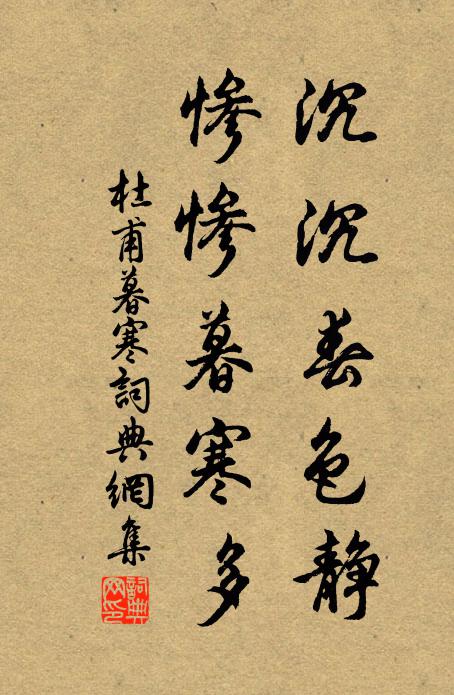 沉沉春色静
惨惨暮寒多
杜甫暮寒詞典網集
詞典网印